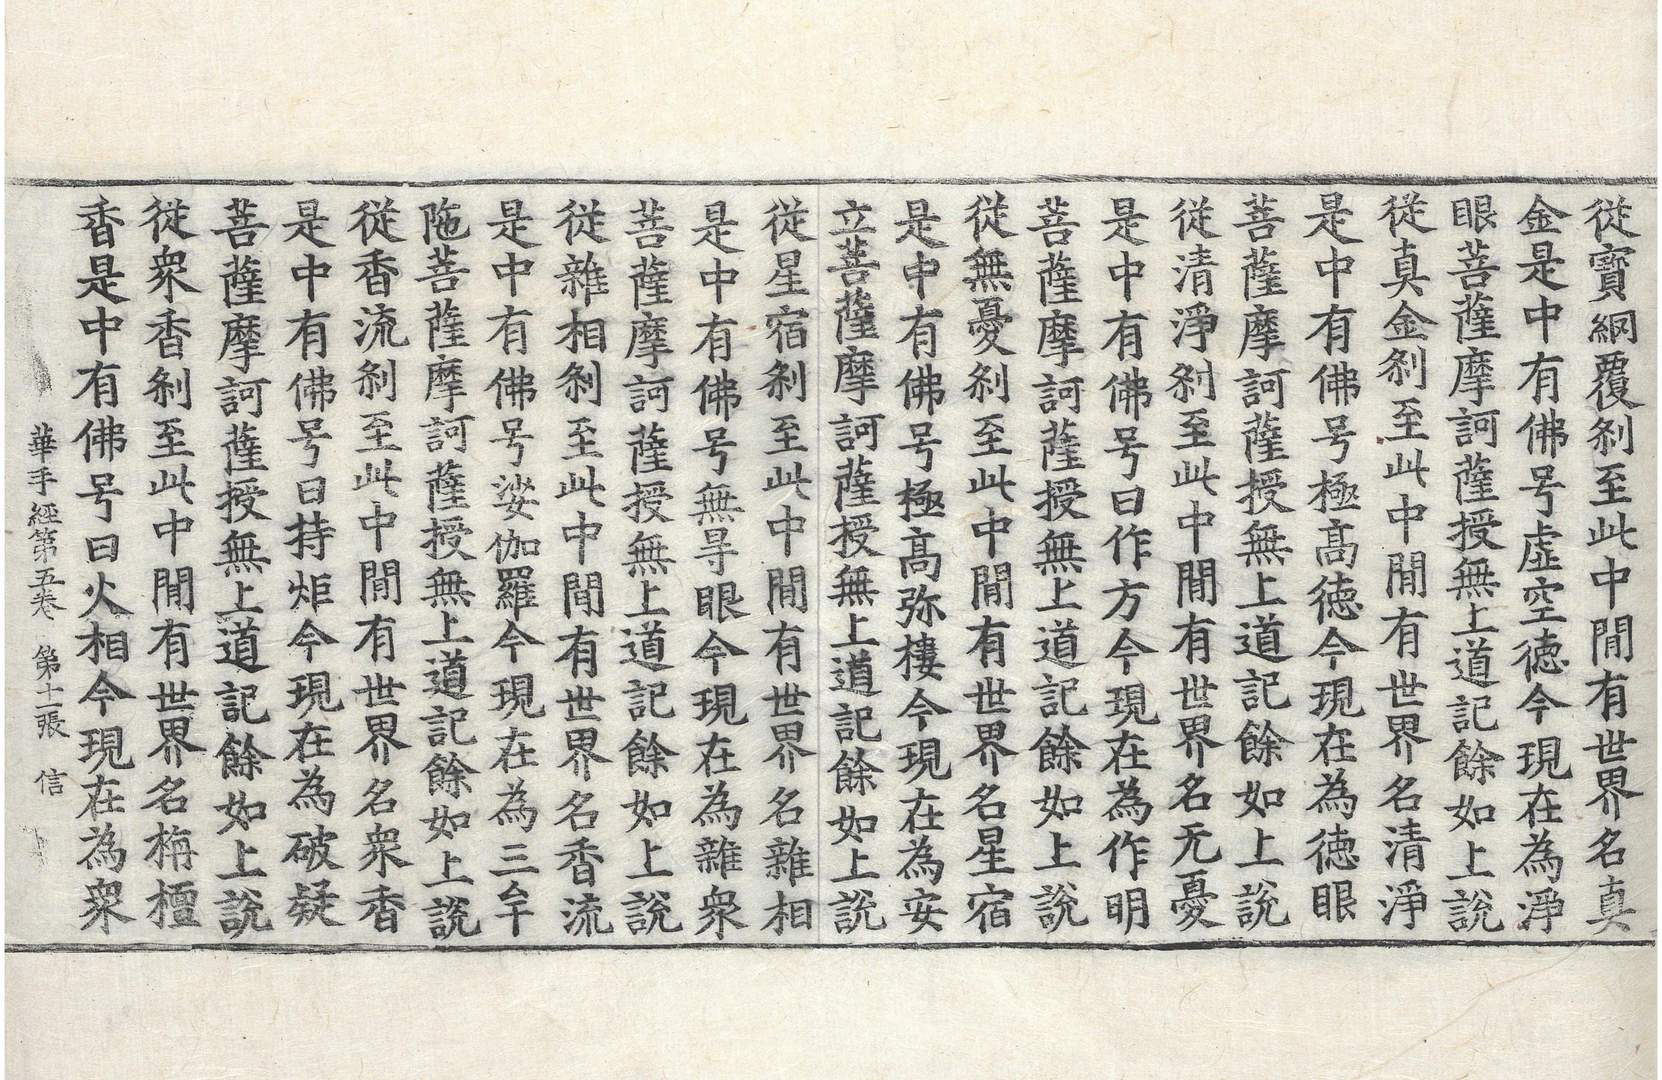 從寶網覆刹至此中閒有世界名真
金是中有佛号虛空德今現在為淨
眼菩薩摩訶薩授無上道記餘如上說
從真金刹至此中閒有世界名清淨
是中有佛号極高德今現在為德眼
菩薩摩訶薩授無上道記餘如上說
從清淨刹至此中閒有世界名无憂
是中有佛号曰作方今現在為作明
菩薩摩訶薩授無上道記餘如上說
從無憂刹至此中閒有世界名星宿
是中有佛号極高弥樓今現在為安
立菩薩摩訶薩授無上道記餘如上說
從星宿刹至此中閒有世界名雜相
是中有佛号無㝵眼今現在為雜衆
菩薩摩訶薩授無上道記餘如上說
從雜相刹至此中閒有世界名香流
是中有佛号娑伽羅今現在為三牟
陁菩薩摩訶薩授無上道記餘如上說
從香流刹至此中閒有世界名衆香
是中有佛号曰持炬今現在為破疑
菩薩摩訶薩授無上道記餘如上說
從衆香刹至此中閒有世界名栴檀
香是中有佛号曰火相今現在為衆
華手經第五卷 第十一張 信